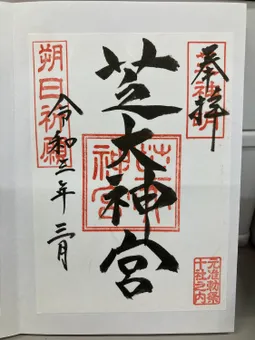 奉拝
芝神明
元准勅祭
十社之内
芝大神宮
朔日祈願
令和三年 三月